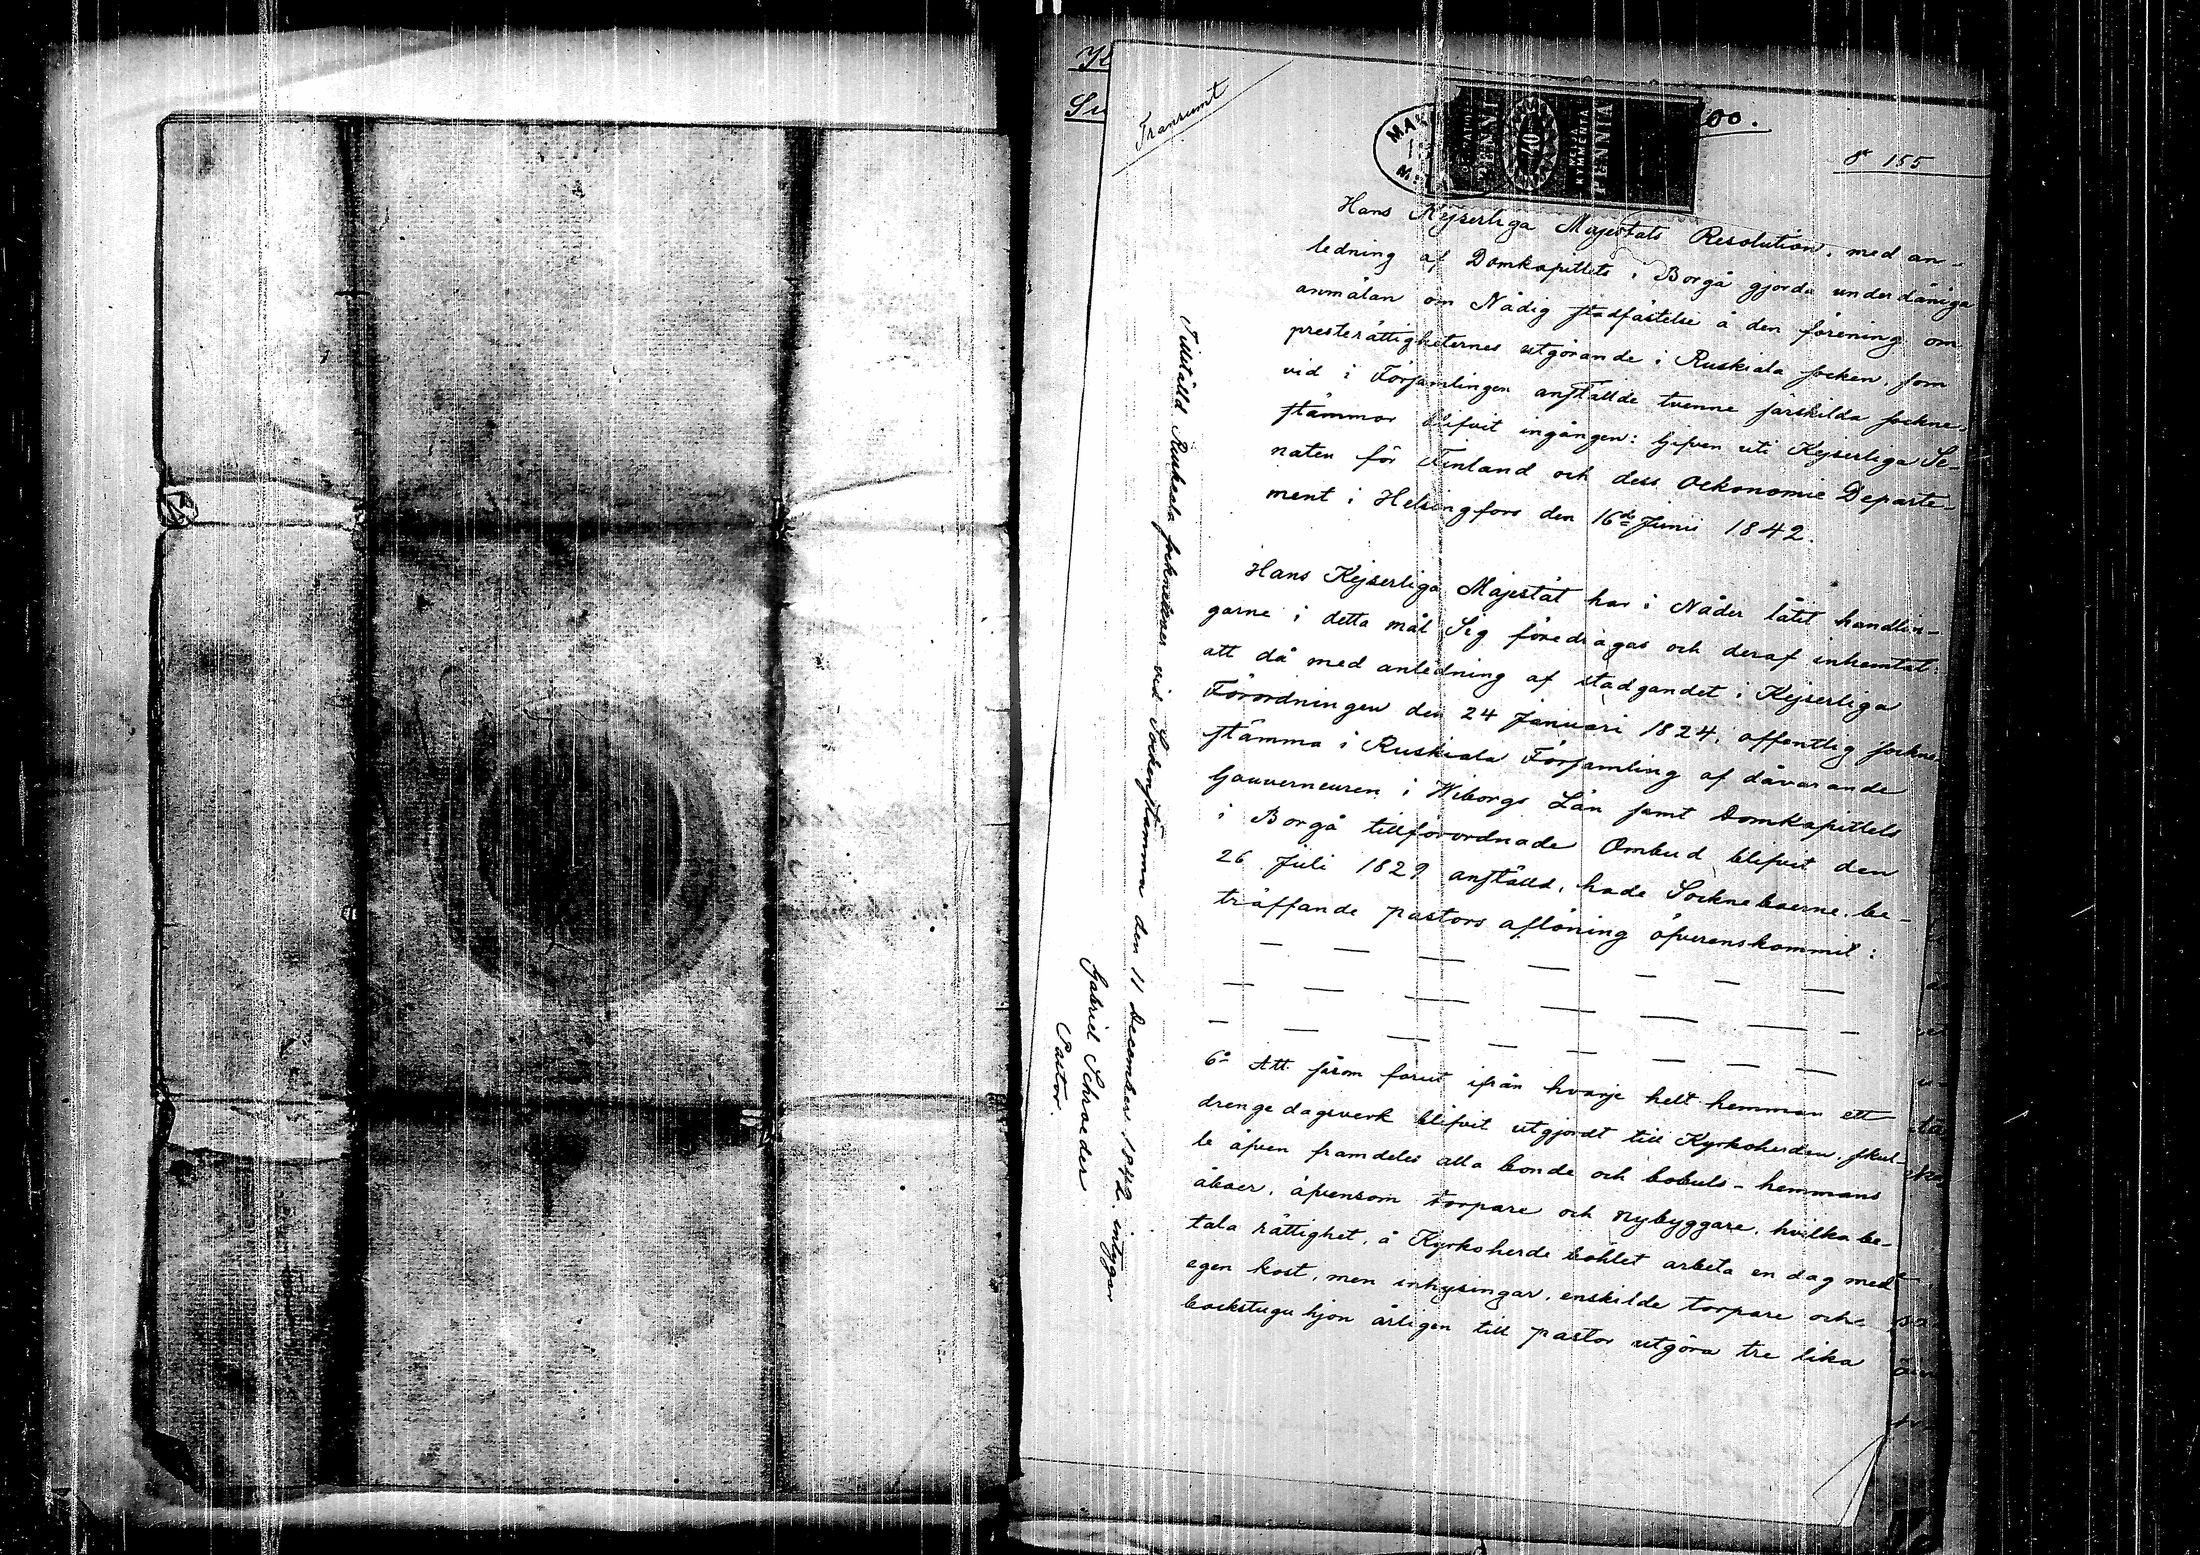 Transumt
00.
155
MAK
PENNI
10
KYMMENTÄ
PENNIÄ
Hans Kejserliga Majestäts Resolution, med an-
ledning af Domkapitlets i Borgå gjorda underdåniga
anmälan om Nådig stadfästelse å den förening om
presterättigheternes utgörande i Ruskiala socken, som
vid i Församlingen anstälde tvenne särskilda sockne-
stämmor blifvit ingången: Gifven uti Kejserliga Se-
naten för Finland och dess Oekonomie Departe-
ment i Helsingfors den 16de Junii 1842.
Hans Kejserliga Majestät har i Nåder låtit handlin-
garne i detta mål Sig föredragas och deraf inhemtat:
att då med anledning af stadgandet i Kejserliga
Förordningen den 24 Januari 1824, offentlig sockne
stämma i Ruskiala Församling af dåvarande
Gouverneuren i Wiborgs Län samt Domkapitlets
i Borgå tillförordnade Ombud blifvit den
26 Juli 1829 anstäld, hade Sockneboerne, be-
träffande pastors aflöning öfverenskommit:
6o Att såsom förut ifrån hvarje helt hemman ett
drenge dagsverk blifvit utgjordt till Kyrkoherden, skul-
le äfven framdeles alla bonde och bobuls-hemmans
åboer, äfvensom torpare och nybyggare, hvilka be-
tala rättighet, å Kyrkoherde bohlet arbeta en dag med
egen kost, men inhysingar, enskilde torpare och
backstugu hjon årligen till pastor utgöra tre lika
Tillställd Ruskeala socknemän vid Sockenstämma den 11 December 1842. intygar
Gabriel Schroeder
Pastor.